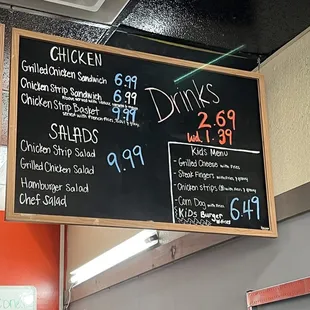 CHICKEN
Grilled Chicken Sandwich 6.99
Chicken Strip Sandwich 6.99
Chicken Strip Basket 9.99
served with french fries,
SALADS
Chicken Strip Salad
Grilled Chicken Salad
Hamburger Salad
Chef Salad
9.99
Drinks
2.69
1.39
Kids Menu
- Grilled Cheese with fries
- Steak Fingers
- Chicken strips
- Corn Dog with fries
- Kids Burger
6.49